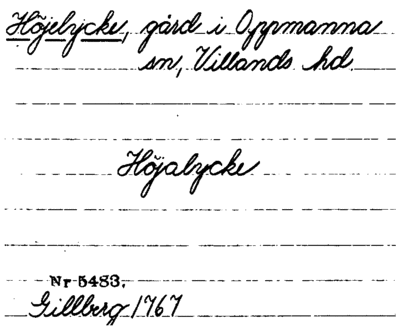 Höjelycke, gård i Oppmanna
sn, Villands hd.
Höjalycke
Nr 5483.
Gillberg 1767